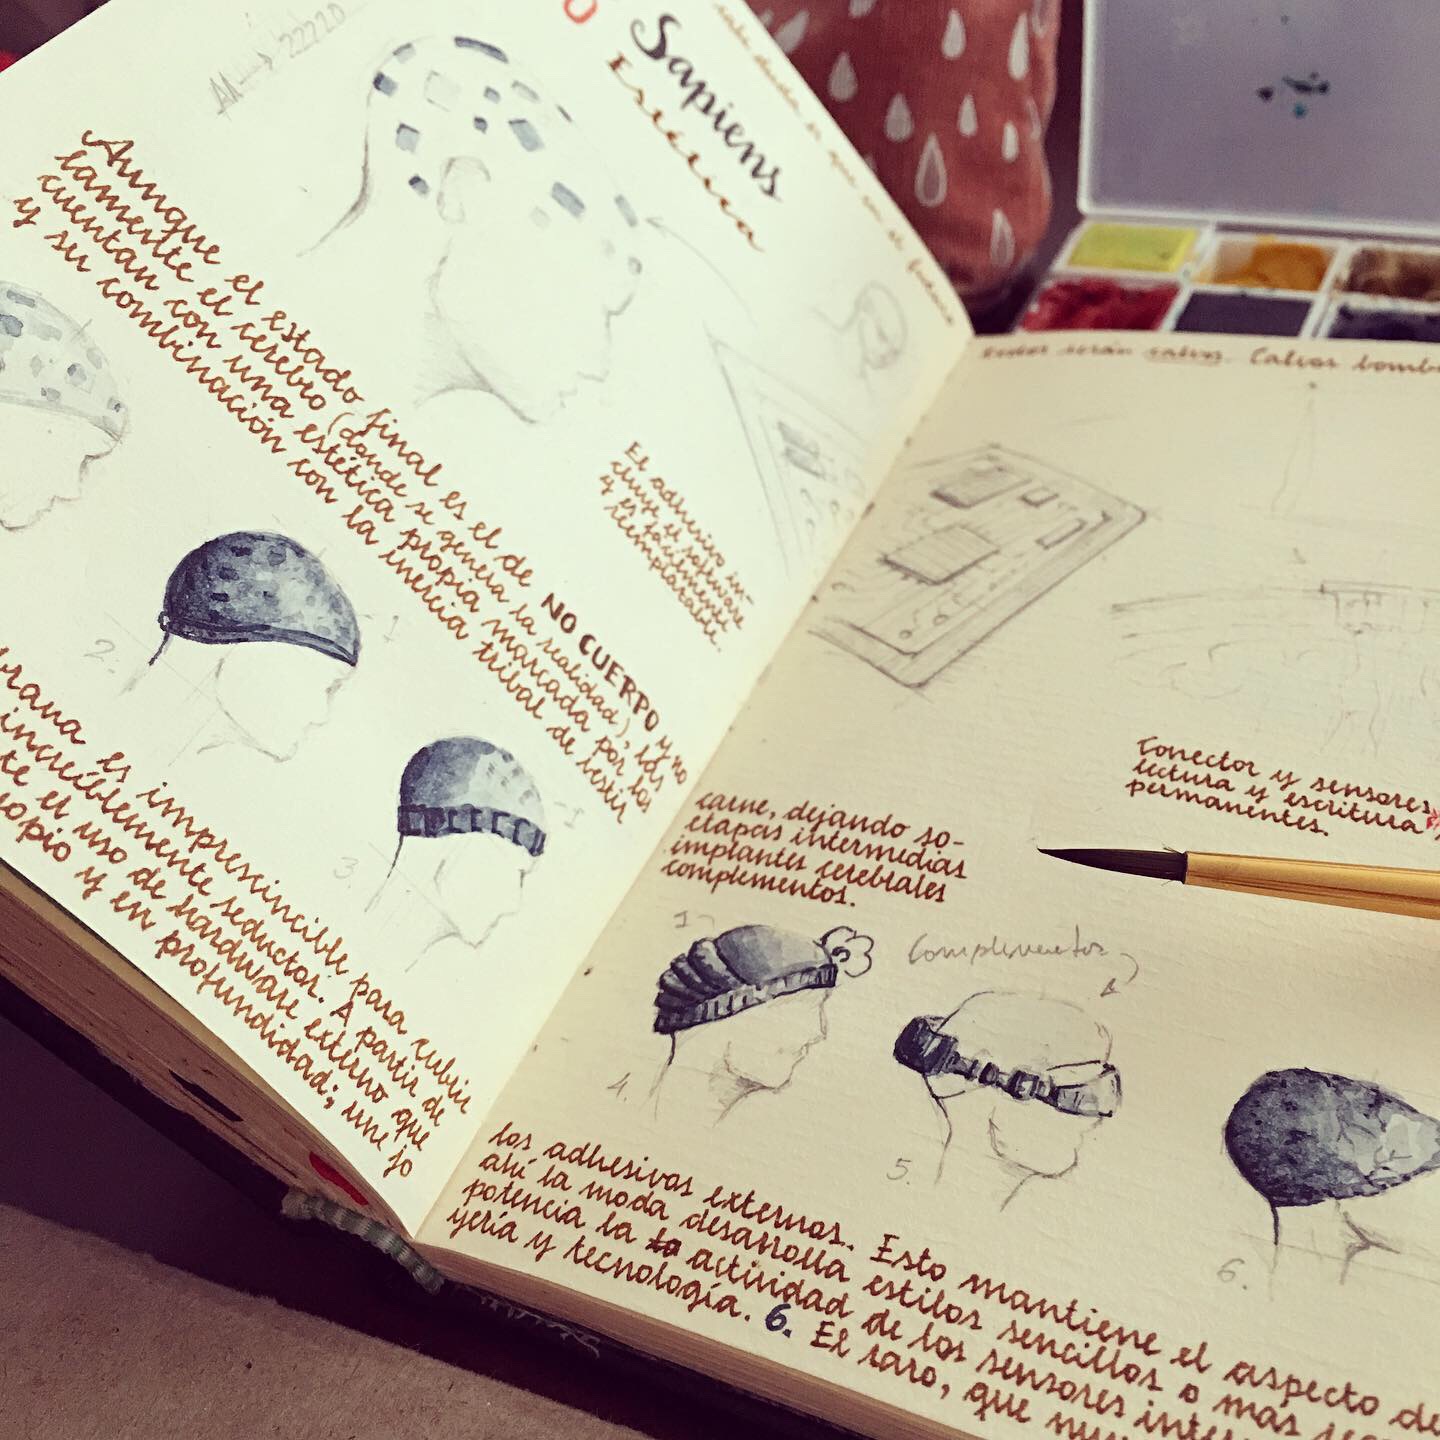 22220
Sapiens
Estética
Aunque el estado final es el de NO CUERPO y no
lamente el cerebro (donde se genera la realidad), las
cuentan con una estética propia marcada por los
y su combinación con la inercia tribal de vestir
El adhesivo in-
cluye el software
y es fácilmente
reemplazable.
2.
1
3.
1
brana es imprescindible para cubrir
increíblemente seductor. A partir de
te el uso de hardware externo que
opio y en profundidad; une jo
todos serán calvos. Calvos bombi
Conector y sensores
lectura y escritura
permanentes.
carne, dejando so-
etapas intermedias
implantes cerebrales
complementos.
1
Complementos
4.
5.
6.
los adhesivos externos. Esto mantiene el aspecto de
ahí la moda desarrolla estilos sencillos o más
potencia la la actividad de los sensores inter
yería y tecnología. 6. El raro, que